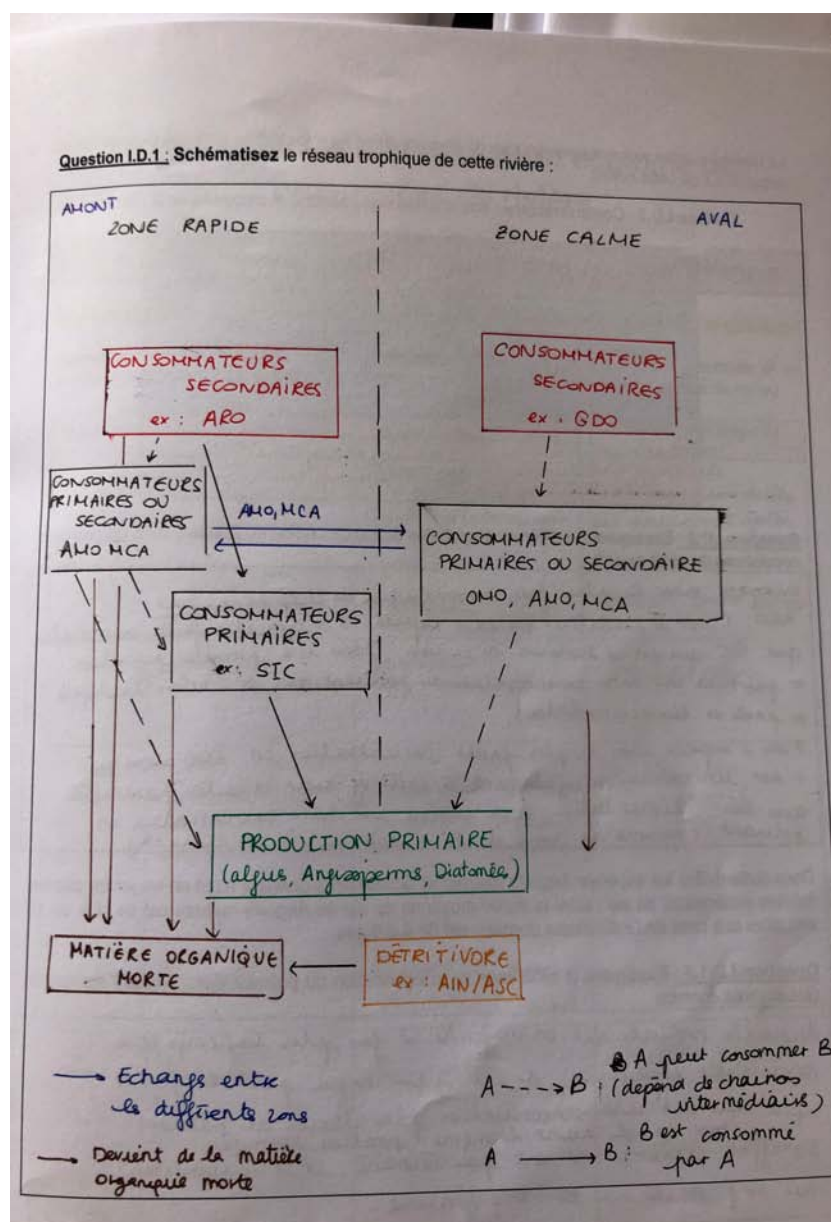 Question I.D.1 : Schématisez le réseau trophique de cette rivière :
AMONT
ZONE RAPIDE
AVAL
ZONE CALME
CONSOMMATEURS
SECONDAIRES
ex : ARO
CONSOMMATEURS
SECONDAIRES
ex : GDO
CONSOMMATEURS
PRIMAIRES OU
SECONDAIRES
AMO MCA
AMO, MCA
CONSOMMATEURS
PRIMAIRES OU SECONDAIRE
OMO, AMO, MCA
CONSOMMATEURS
PRIMAIRES
ex : SIC
PRODUCTION PRIMAIRE
(algues, Angiosperms, Diatomées)
MATIÈRE ORGANIQUE
MORTE
DÉTRITIVORE
ex : AIN/ASC
→ Echangs entre
les différents zons
→ Devient de la matière
organique morte
A ---> B : A peut consommer B
(dépend de chainons
intermédiairs)
A → B : B est consommé
par A